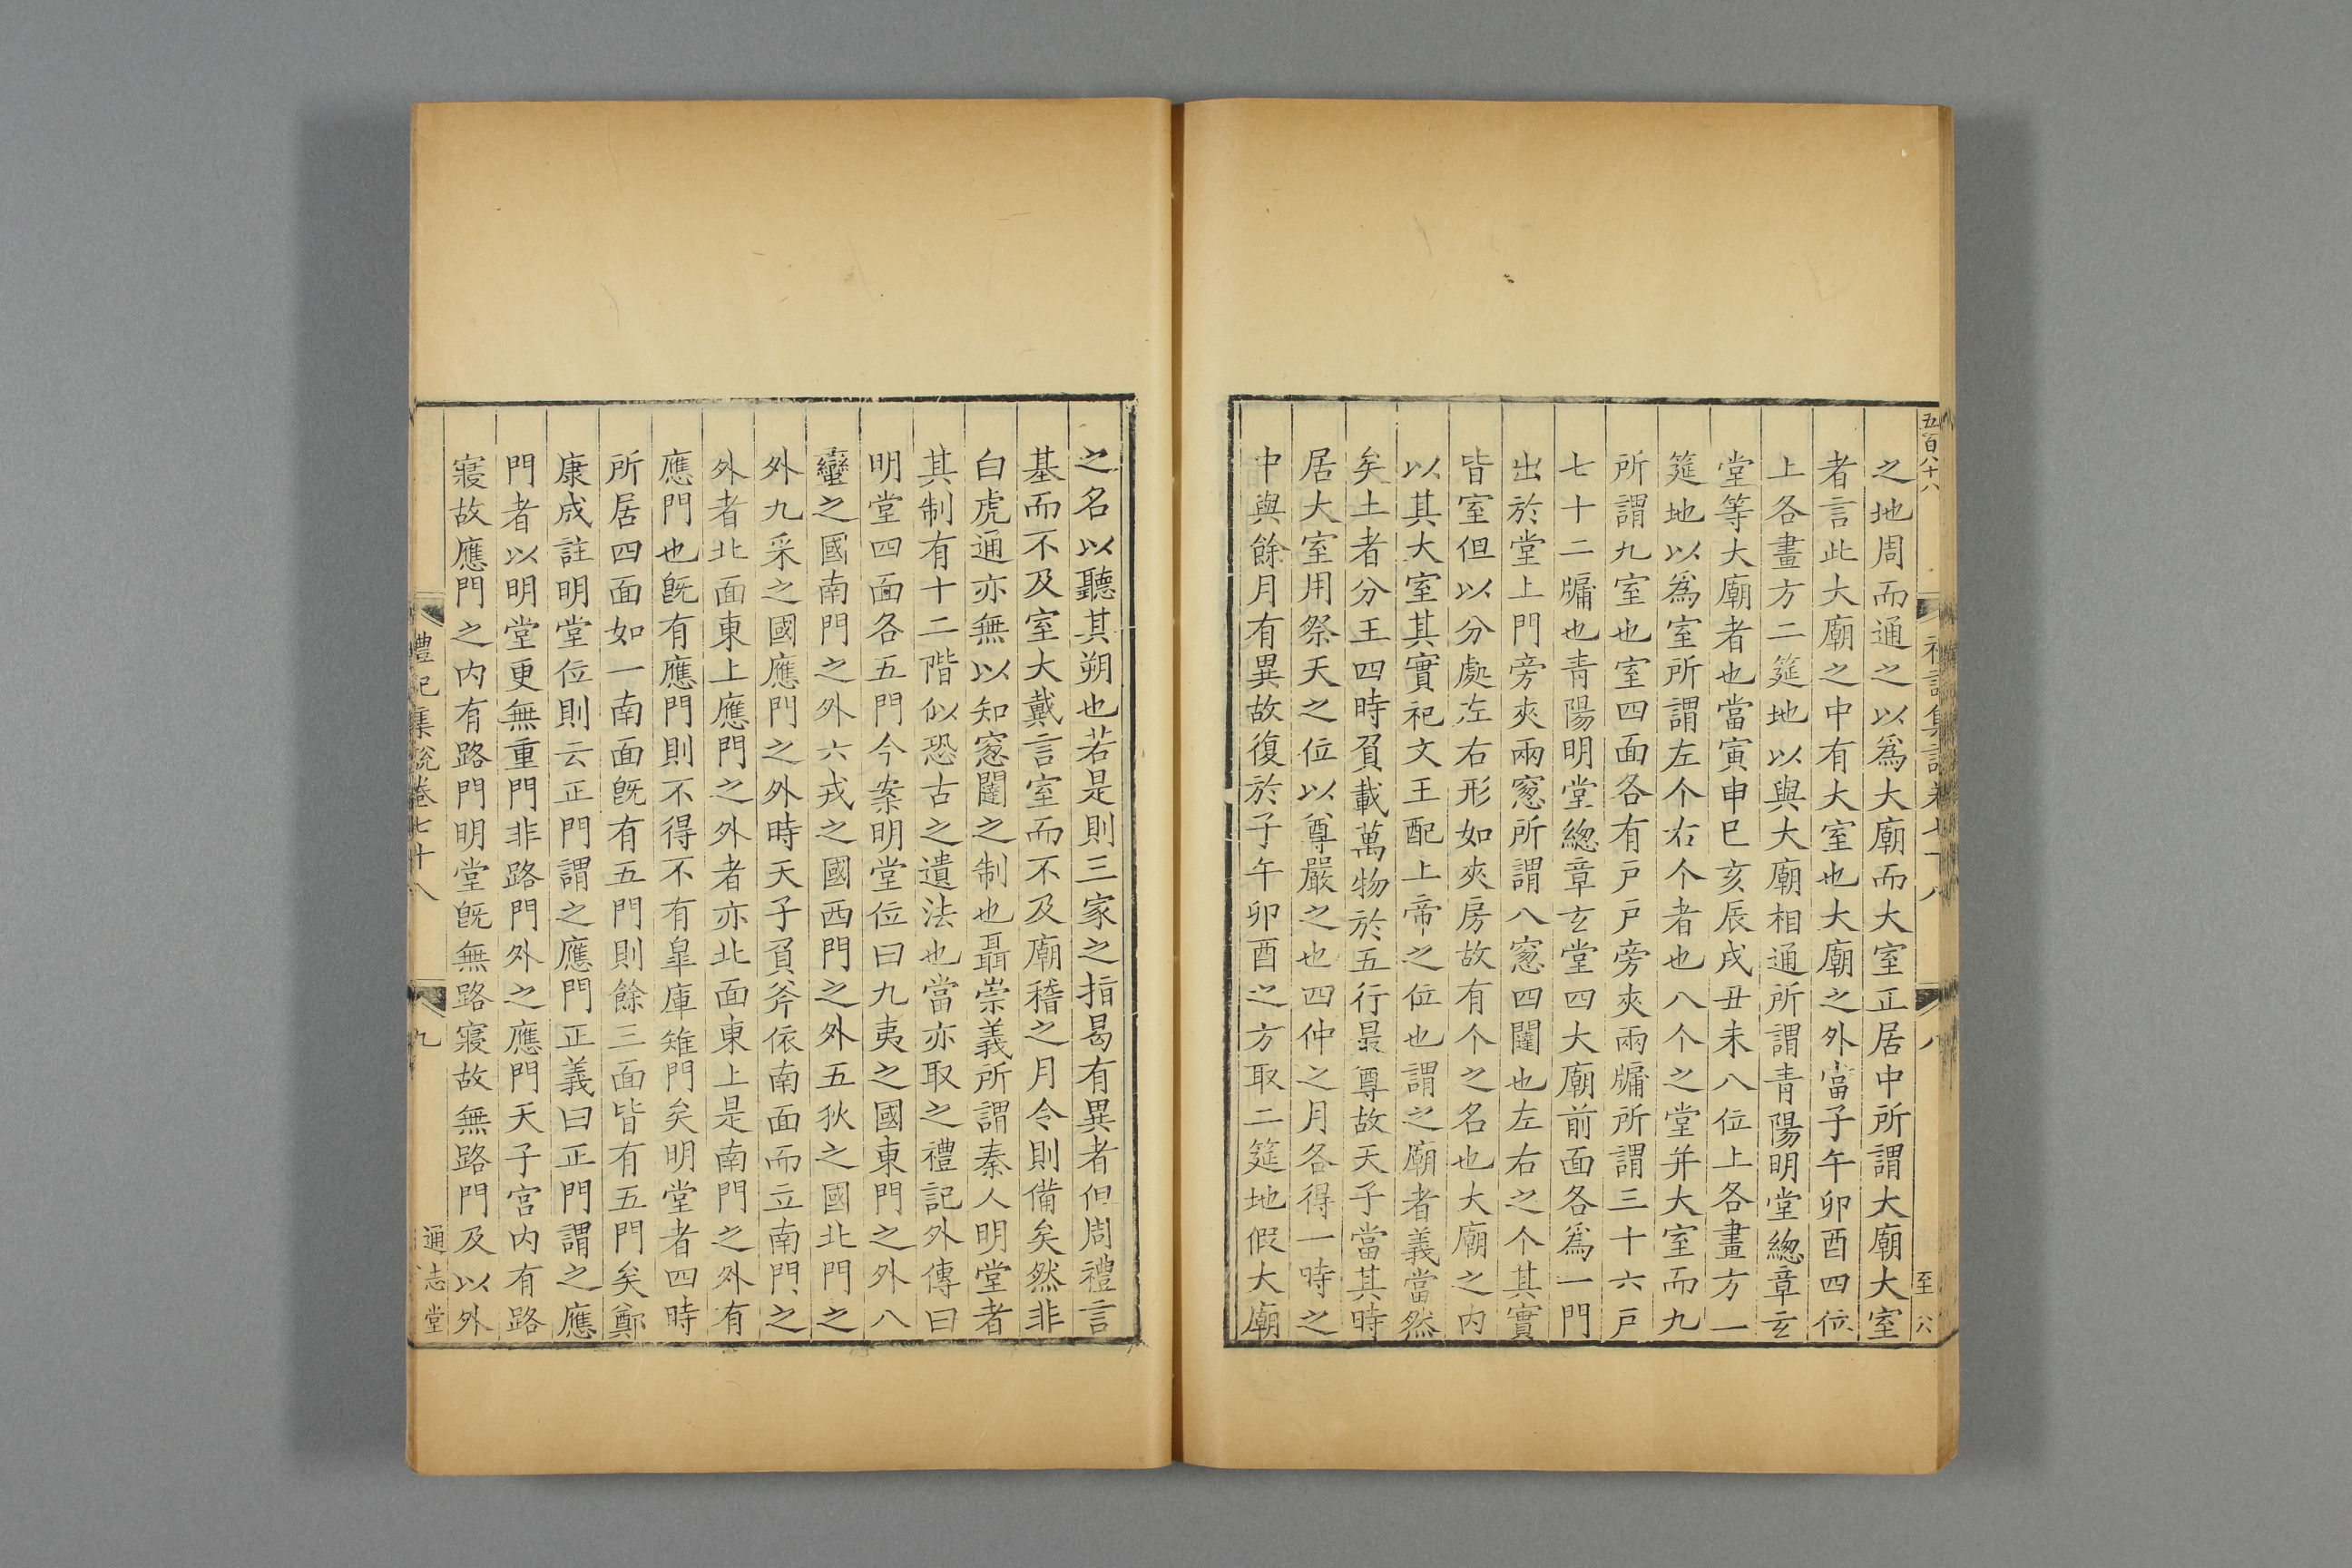 五百八十八
禮記集說卷七十八
八
至六
之地周而通之以爲大廟而大室正居中所謂大廟大室
者言此大廟之中有大室也大廟之外當子午卯酉四位
上各畫方二筵地以與大廟相通所謂青陽明堂緫章玄
堂等大廟者也當寅申巳亥辰戌丑未八位上各畫方一
筵地以爲室所謂左个右个者也八个之堂并大室而九
所謂九室也室四面各有戸戸旁夾兩牖所謂三十六戸
七十二牖也青陽明堂緫章玄堂四大廟前面各爲一門
出於堂上門旁夾兩窻所謂八窻四闥也左右之个其實
皆室但以分處左右形如夾房故有个之名也大廟之内
以其大室其實祀文王配上帝之位也謂之廟者義當然
矣土者分王四時負載萬物於五行最尊故天子當其時
居大室用祭天之位以尊嚴之也四仲之月各得一時之
中與餘月有異故復於子午卯酉之方取二筵地假大廟
之名以聽其朔也若是則三家之指曷有異者但周禮言
基而不及室大戴言室而不及廟稽之月令則備矣然非
白虎通亦無以知窻闥之制也聶崇義所謂秦人明堂者
其制有十二階似恐古之遺法也當亦取之禮記外傳曰
明堂四面各五門今案明堂位曰九夷之國東門之外八
蠻之國南門之外六戎之國西門之外五狄之國北門之
外九采之國應門之外時天子負斧依南面而立南門之
外者北面東上應門之外者亦北面東上是南門之外有
應門也旣有應門則不得不有臯庫雉門矣明堂者四時
所居四面如一南面旣有五門則餘三面皆有五門矣鄭
康成註明堂位則云正門謂之應門正義曰正門謂之應
門者以明堂更無重門非路門外之應門天子宮内有路
寢故應門之内有路門明堂旣無路寢故無路門及以外
禮記集說卷七十八
九
通志堂